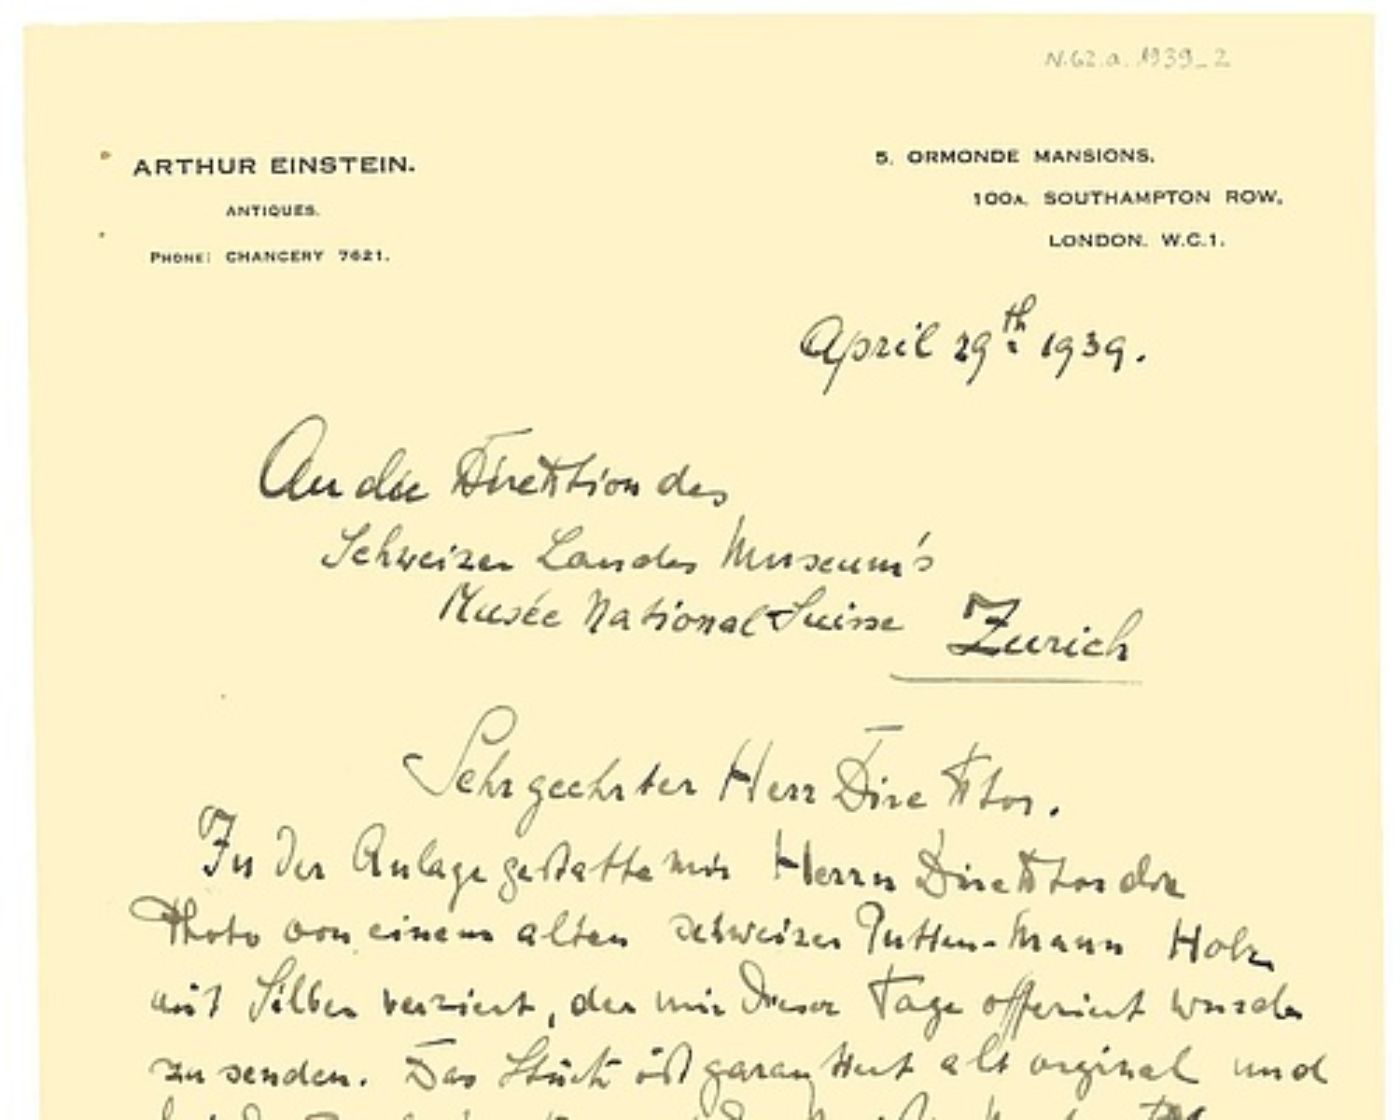 N.62.a.1939_2
ARTHUR EINSTEIN.
ANTIQUES.
PHONE: CHANCERY 7621.
5, ORMONDE MANSIONS,
100A, SOUTHAMPTON ROW,
LONDON. W.C.1.
April 29th 1939.
An die Direktion des
Schweizer Landes Museum's
Musée National Suisse Zurich
Sehr geehrter Herr Direktor.
In der Anlage gestatte mir Herrn Direktor die
Photo von einem alten schweizer Putten-Mann Holz
mit Silber verziert, der mir dieser Tage offeriert wurde
zu senden. Das Stück ist garantiert alt orginal und